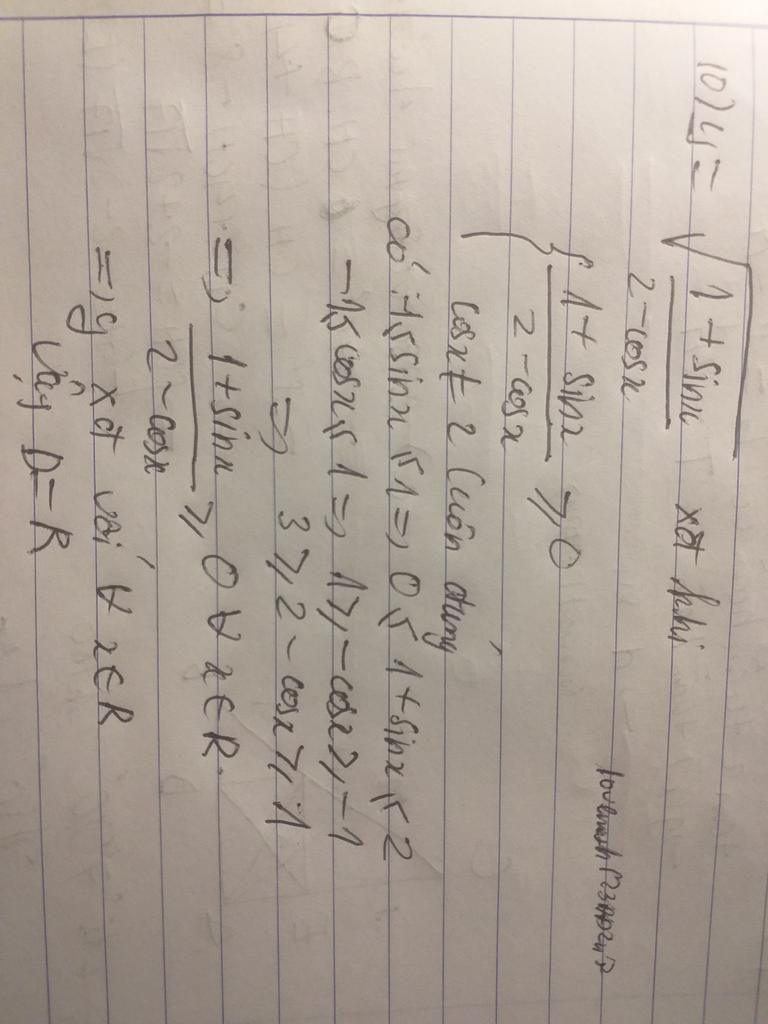 10) y = √(1 + sinx / 2 - cosx) xđ khi
{ 1 + sinx / 2 - cosx ≥ 0
cosx ≠ 2 (luôn đúng
có -1 ≤ sinx ≤ 1 => 0 ≤ 1 + sinx ≤ 2
-1 ≤ cosx ≤ 1 => 1 ≥ -cosx ≥ -1
=> 3 ≥ 2 - cosx ≥ 1
=> 1 + sinx / 2 - cosx ≥ 0 ∀ x ∈ R.
=> y xđ với ∀ x ∈ R
Vậy D = R